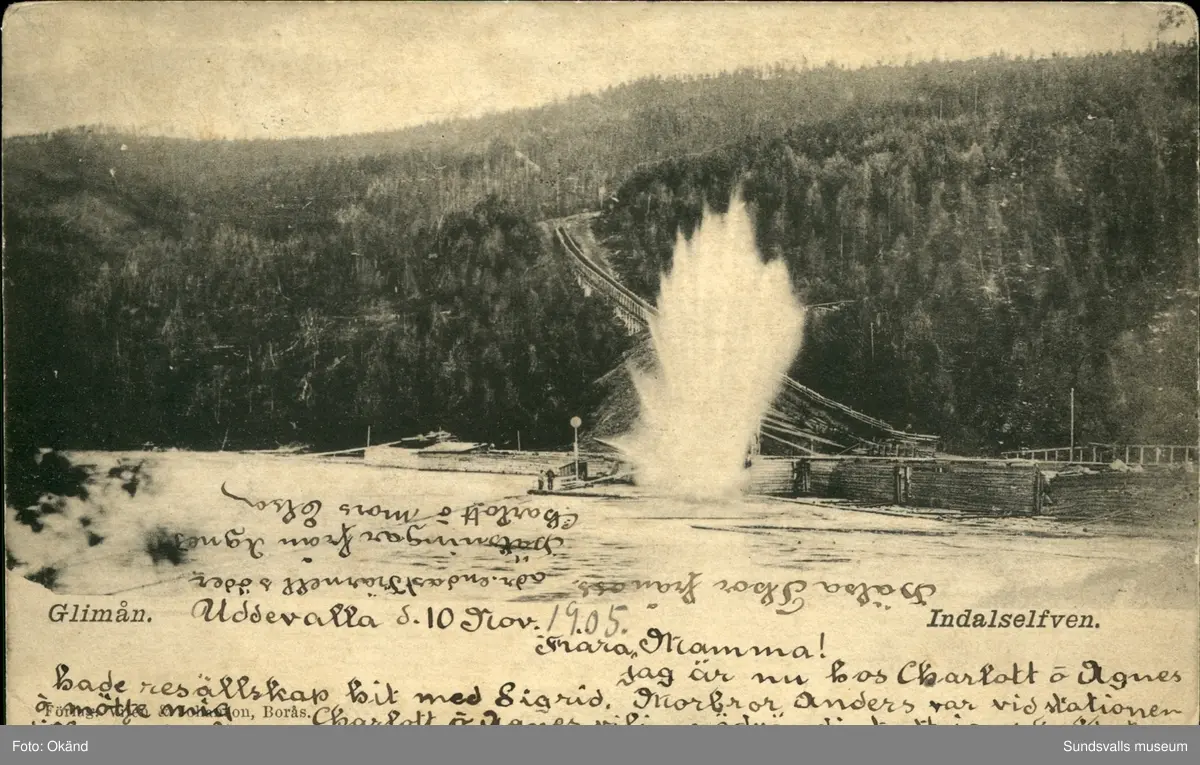 Glimån.
Indalselfven.
Uddevalla d. 10 Nov. 1905.
Kära Mamma!
jag är nu hos Charlott ō Agnes
hade resällskap hit med Sigrid. Morbror Anders var vid stationen
ō mötte mig
Borås.
Charlott ō Agnes
Hälsa Thor från oss.
adr. endast Kärnell söder
Hälsningar från Agnes
Charlott ō Mors Elsa
Foto: Okänd
Sundsvalls museum